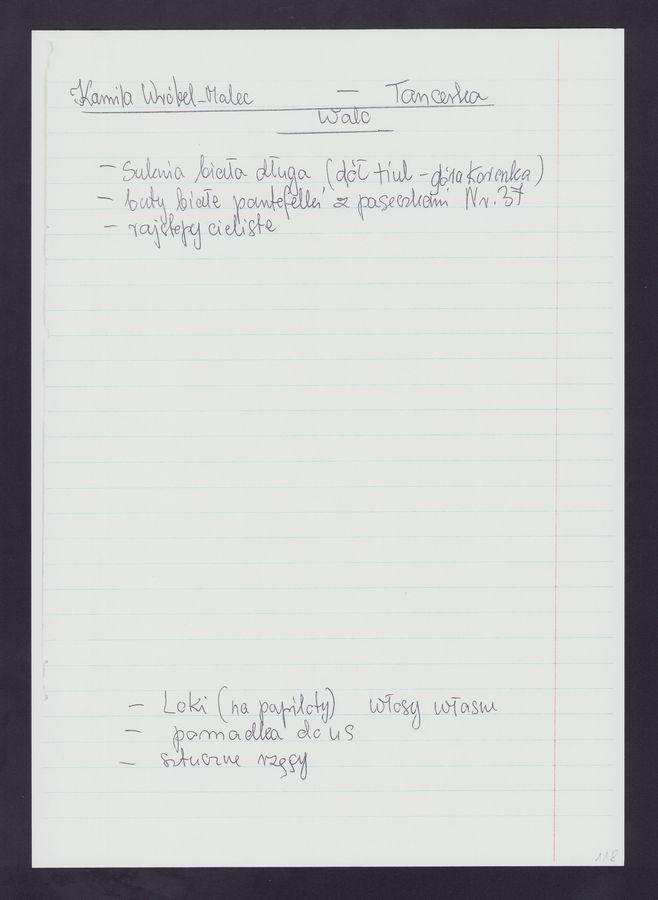 Kamila Wróbel-Malec — Tancerka
Walc
- Suknia biała długa (dół tiul - góra koronka)
- buty białe pantofelki z paseczkami Nr. 37
- rajstopy cieliste
- Loki (na papiloty) włosy własne
- pomadka do us
- sztuczne rzęsy
118